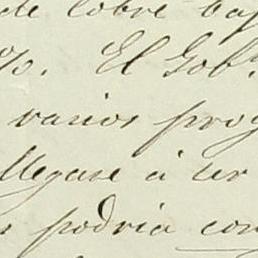 de cobre baj
%. El Gobº
varios proy
llegase á ser
podria con